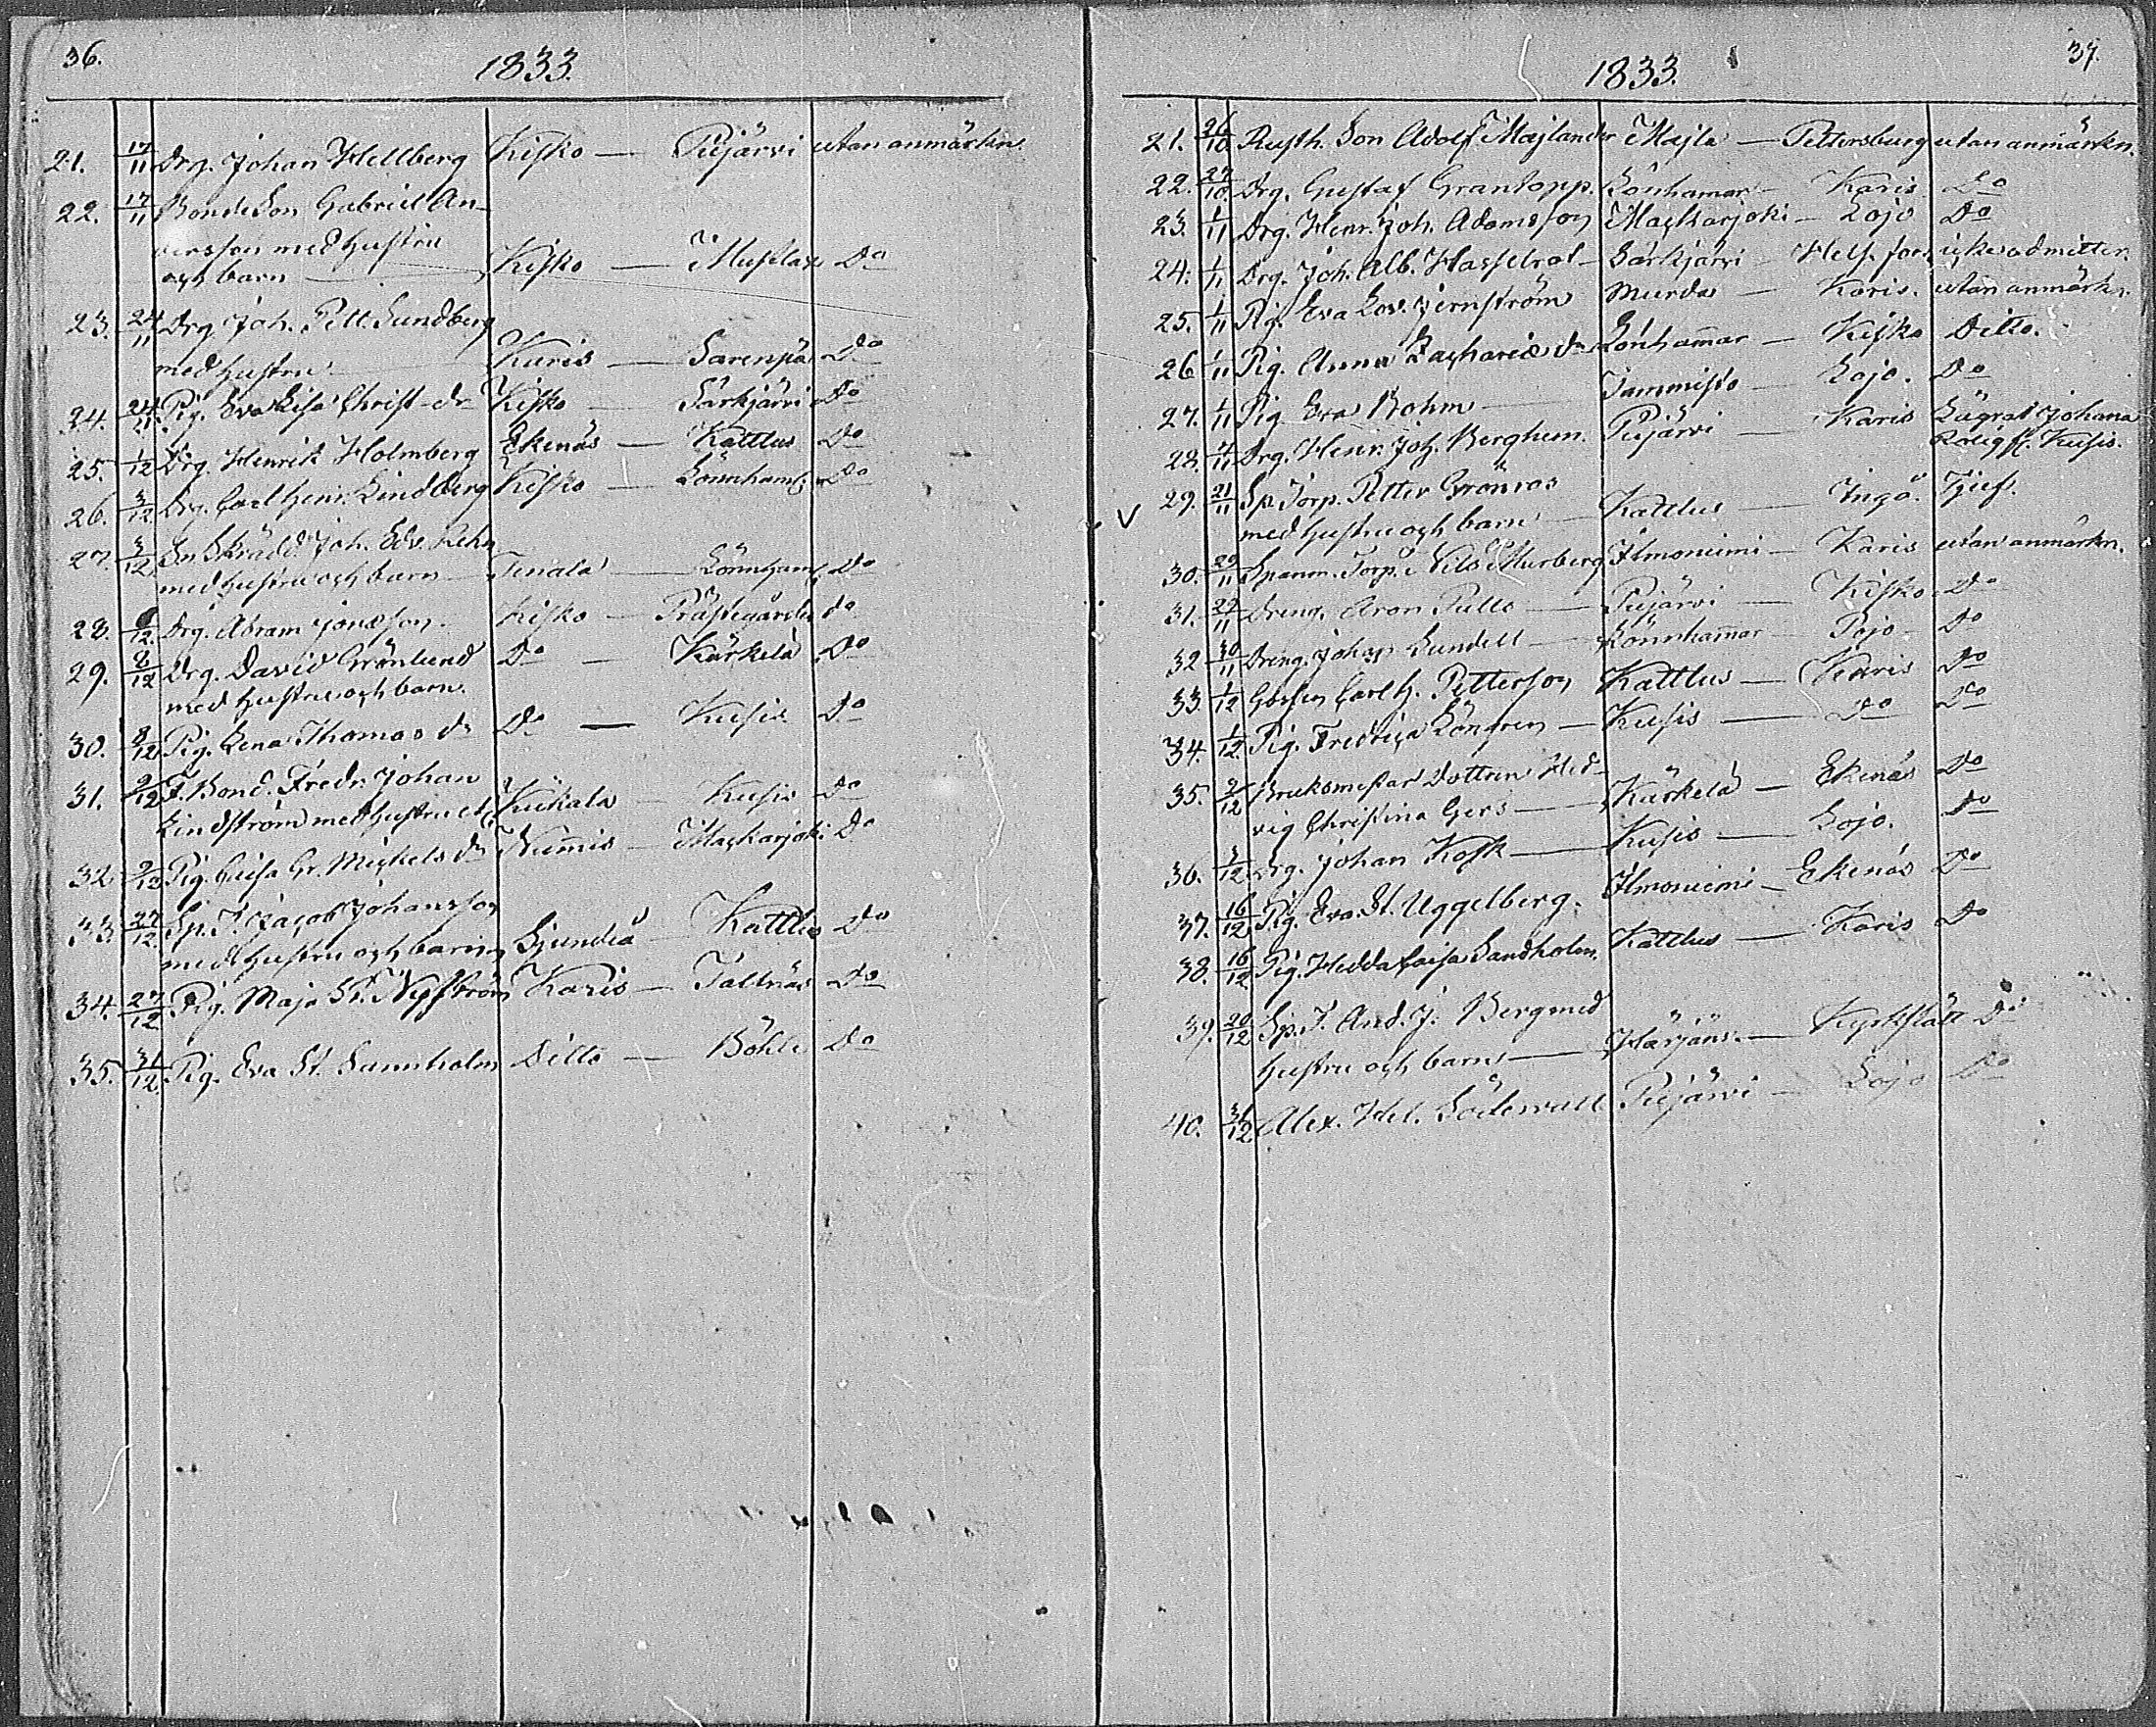 36.
1833.
21. 17/11 Drg. Johan Hellberg Kisko — Piejärvi utan anmärkn.
22. 17/11 Bonde Son Gabriel An-
dersson med hustru
och barn — Kisko — Musilax Do
23. 24/11 Drg Joh. Pett. Sundberg
med hustru Karis — Sarenpä Do
24. 24/11 Pig. Eva Lisa Christ-dr Kisko — Särkjärvi Do
25. 1/12 Drg. Henrik Holmberg Ekenäs — Kattlus Do
26. 3/12 Drg. Carl Henr. Lindberg Kisko — Lönnham. Do
27. 3/12 Sn Skrädd. Joh. Edv. Rehn
med hustru och barn — Tenala — Lönnham. Do
28. 12 Drg. Abram Jonasson Kisko — Prästegården do
29. 8/12 Drg. David Grönlund Do — Kärkelä Do
med hustru och barn.
30. 8/12 Pig. Lena Thomas dr Do — Kusis Do
31. 9/12 F. Bond. Fredr. Johan
Lindström med hustru etc. Kukala — Kusis Do
32. 9/12 Pig. Caisa Gr. Mickels dr Nummis — Maskarjoki Do
33. 27/12 Sp. T. Jacob Johansson
med hustru och barn Sjundeå — Kattlus Do
34. 27/12 Pig. Maja St. Nyström Karis — Tallnäs Do
35. 31/12 Pig. Eva St. Sannholm Ditto — Böhle Do
37.
1833.
21. 26/10 Rusth. Son Adolf Majlander Majla — Pettersburg utan anmärkn.
22. 27/10 Drg. Gustaf Grantopp. Lönhamar — Karis Do
23. 1/11 Drg. Henr. Joh. Adamsson Maskarjoki — Lojo Do
24. 1/11 Drg. Joh. Alb. Hasselrot — Särkjärvi — Helf. fors icke admitter.
25. 1/11 Pig. Eva Lov. Jernström Murda — Karis. utan anmärkn.
26 1/11 Pig. Anna Zacharie dr Lönhammar — Kisko Ditto.
27. 1/11 Pig Eva Bohm — Tammisto — Lojo. Do
28. 11 Drg. Henr. Joh. Berghem. Piejärvi — Karis Lägrat Johana
Kusis.
V 29. 21/11 Sp. Torp. Petter Grönros
med hustru och barn — Kattlus — Ingå. Tjuf.
30. 29/11 Spanm. Torp. Nils Murberg Ilmoniemi — Karis utan anmärkn.
31. 29/11 Dreng. Aron Pullo — Piejärvi — Kisko Do
32 30/11 Dreng. Johan Lundell — Lönnhammar — Pojo Do
33. 1/12 Gossen Carl H. Pettersson Kattlus — Karis Do
34. 1/12. Pig. Fredrica Löngren — Kusis — Do Do
35. 3/12 Bruksmästar dottren Hed-
vig Christina Gers — Kärkelä — Ekenäs Do
36. 12 Drg. Johan Kosk — Kusis — Lojo. Do
37. 16/12 Pig. Eva St. Uggelberg. Ilmoniemi — Ekenäs Do
38. 16/12 Pig. Hedda Caisa Sandholm. Kattlus — Karis Do
39. 20/12 Sp. T. And. J. Berg med
hustru och barn — Härjäns. — Kyrkslätt Do
40. 31/12 Alex. Hel. Söderwall Piejärvi — Lojo Do